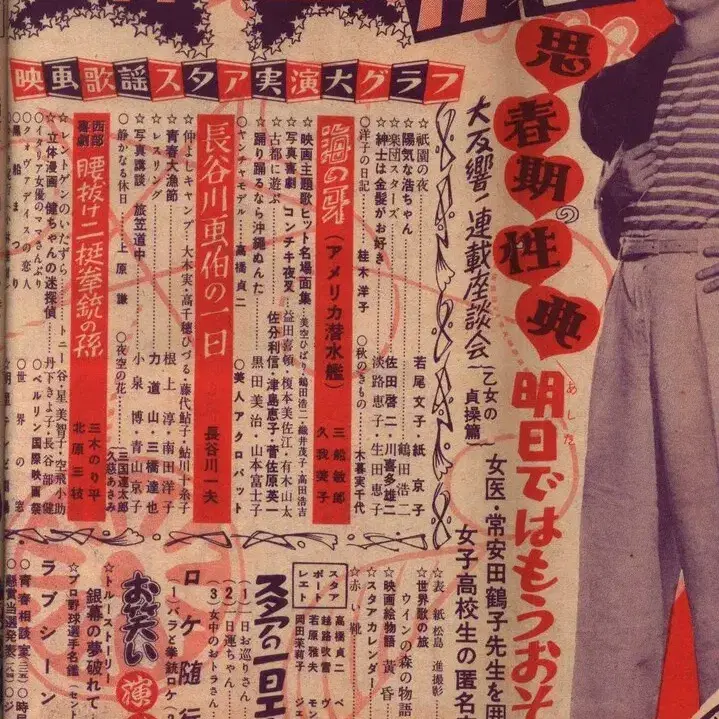 思春期の性典
明日ではもうおそ
あした
大反響!連載座談会
乙女の貞操篇
女医・常安田鶴子先生を囲
女子高校生の匿名
映画歌謡スタア実演大グラフ
☆祇園の夜
若尾文子・紙京子
☆陽気な浩ちゃん
鶴田浩二
☆楽団スターズ
佐田啓二・川喜多雄二
☆紳士は金髪がお好き
淡路恵子・生田恵子
○洋子の日記
桂木洋子
○秋のきもの
木暮実千代
(アメリカ潜水艦)
三船敏郎
久我美子
☆映画主題歌ヒット名場面集
美空ひばり・鶴田浩二・織井茂子・高田浩吉
☆写真喜劇 コンチキ夜叉
益田喜頓・榎本美佐江・有木山太
☆古都に遊ぶ
佐分利信・津島恵子・菅佐原英一
☆踊り踊るなら沖縄ぬんた
黒田美治・山本富士子
○ヤンチャモデル
高橋貞二
○美人アクロバット
長谷川画伯の一日
長谷川一夫
☆仲よしキャンプ
大木実・高千穂ひづる・藤代鮎子・鮎川十糸子
☆青春大漁節
根上淳・南田洋子
☆レスリング
力道山・三橋達也
☆写真講談 旅笠道中
小泉博・青山京子
○静かなる休日
上原謙
○夜空の花
三国連太郎
久慈あさみ
西部喜劇
腰抜け二挺拳銃の孫
三木のり平
北原三枝
☆レントゲンのいたずら
トニー谷・星美智子・空飛小助
☆立体漫画 健ちゃんの迷探偵
丹下きよ子・長谷部健
○イタリア女優のママさんぶり
○ベルリン国際映画祭
○世界の窓
○黒船まつり
☆表紙
松島進撮影
☆世界歌の旅
ウインの森の物語
☆映画絵物語
黄昏
☆スタアカレンダー
☆赤い靴
スタアポートレエト
高橋貞二
越路吹雪
若原雅夫
岡田茉莉子
スタアの一日エ
(1)お巡りさん
(2)一日運ちゃん
(3)女中のおトラさん
ロケ随行
(1)バラと拳銃ロケ(2)
お笑い演
☆トルーストーリー
銀幕の夢破れて
☆プロ野球選手名鑑(セント
ラブシーン
○青春相談室
○懸賞当選発表